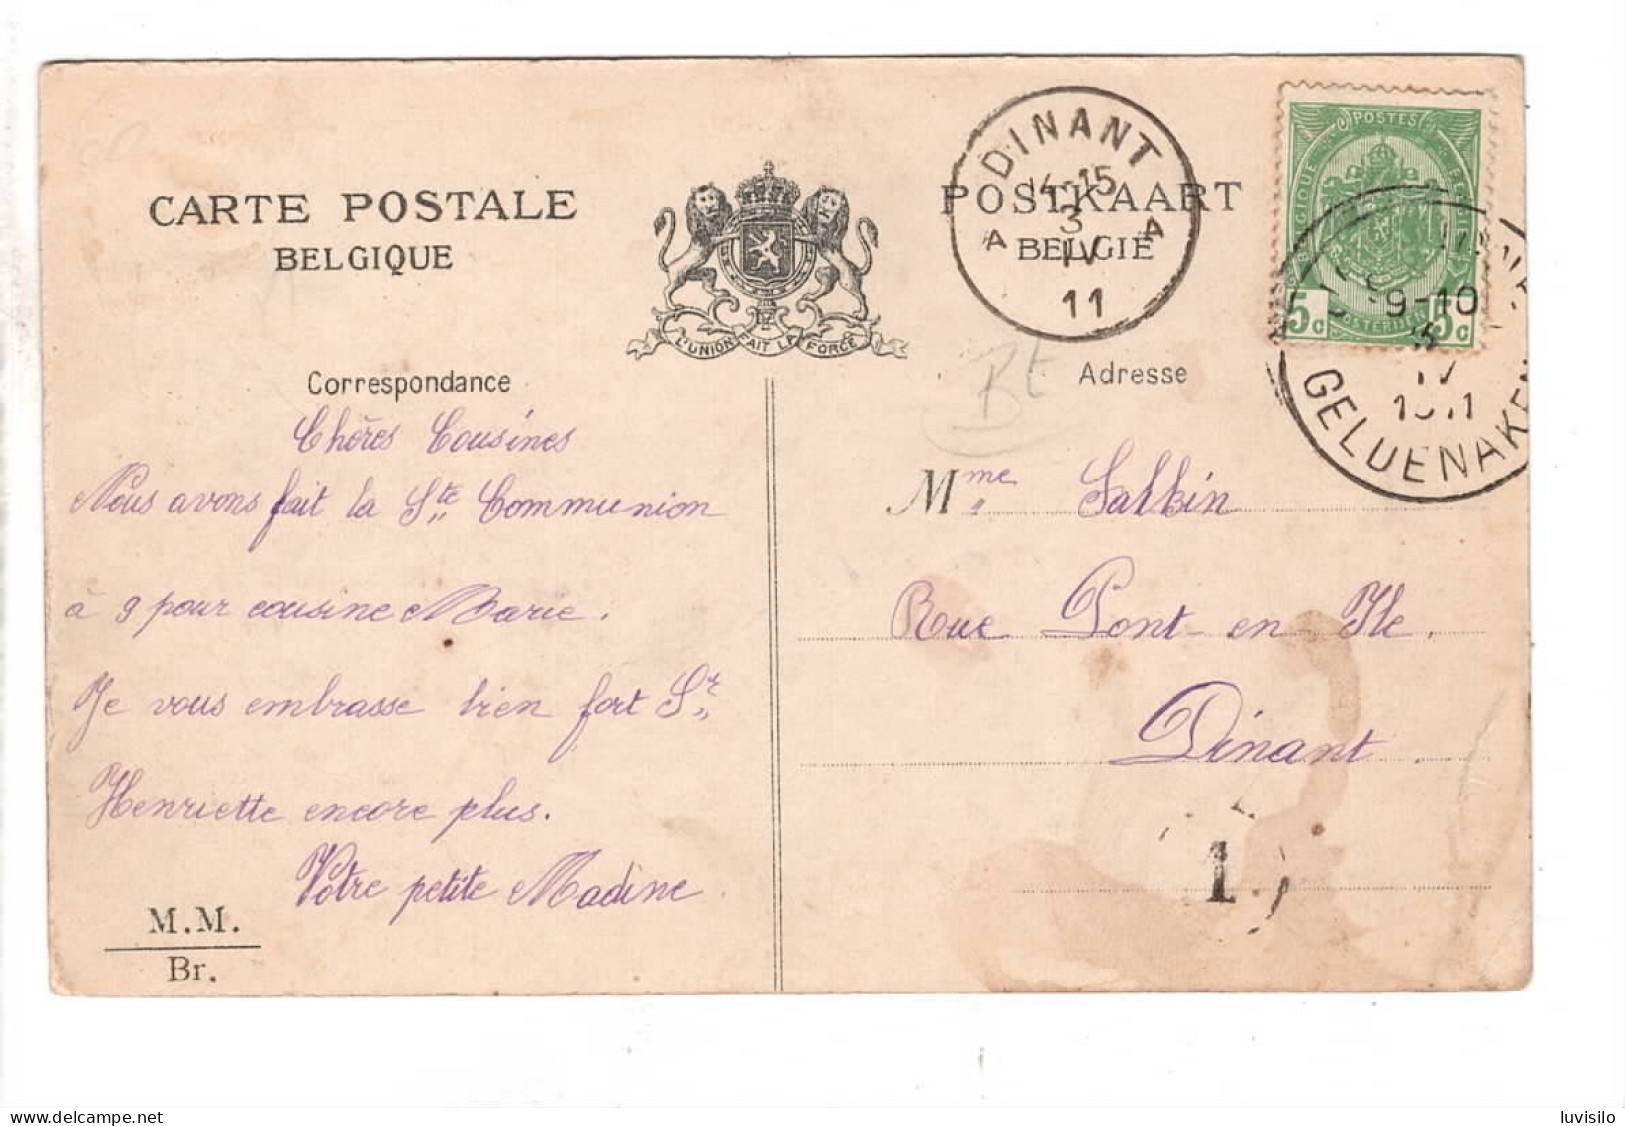 CARTE POSTALE
BELGIQUE
L'UNION FAIT LA FORCE
POSTKAART
BELGIE
DINANT
14-15
3
IV
11
A A
POSTES
BELGIQUE
5c
5c
9-10
IV
1911
GELDENAKEN
Correspondance
Bt
Adresse
Chères Cousines
Nous avons fait la Ste Communion
à 9 pour cousine Marie.
Je vous embrasse bien fort Sr
Henriette encore plus.
Votre petite Madine
M.M.
Br.
Mme Salbin
Rue Pont-en Ile.
Dinant.
1
delcampe.net
luvisilo